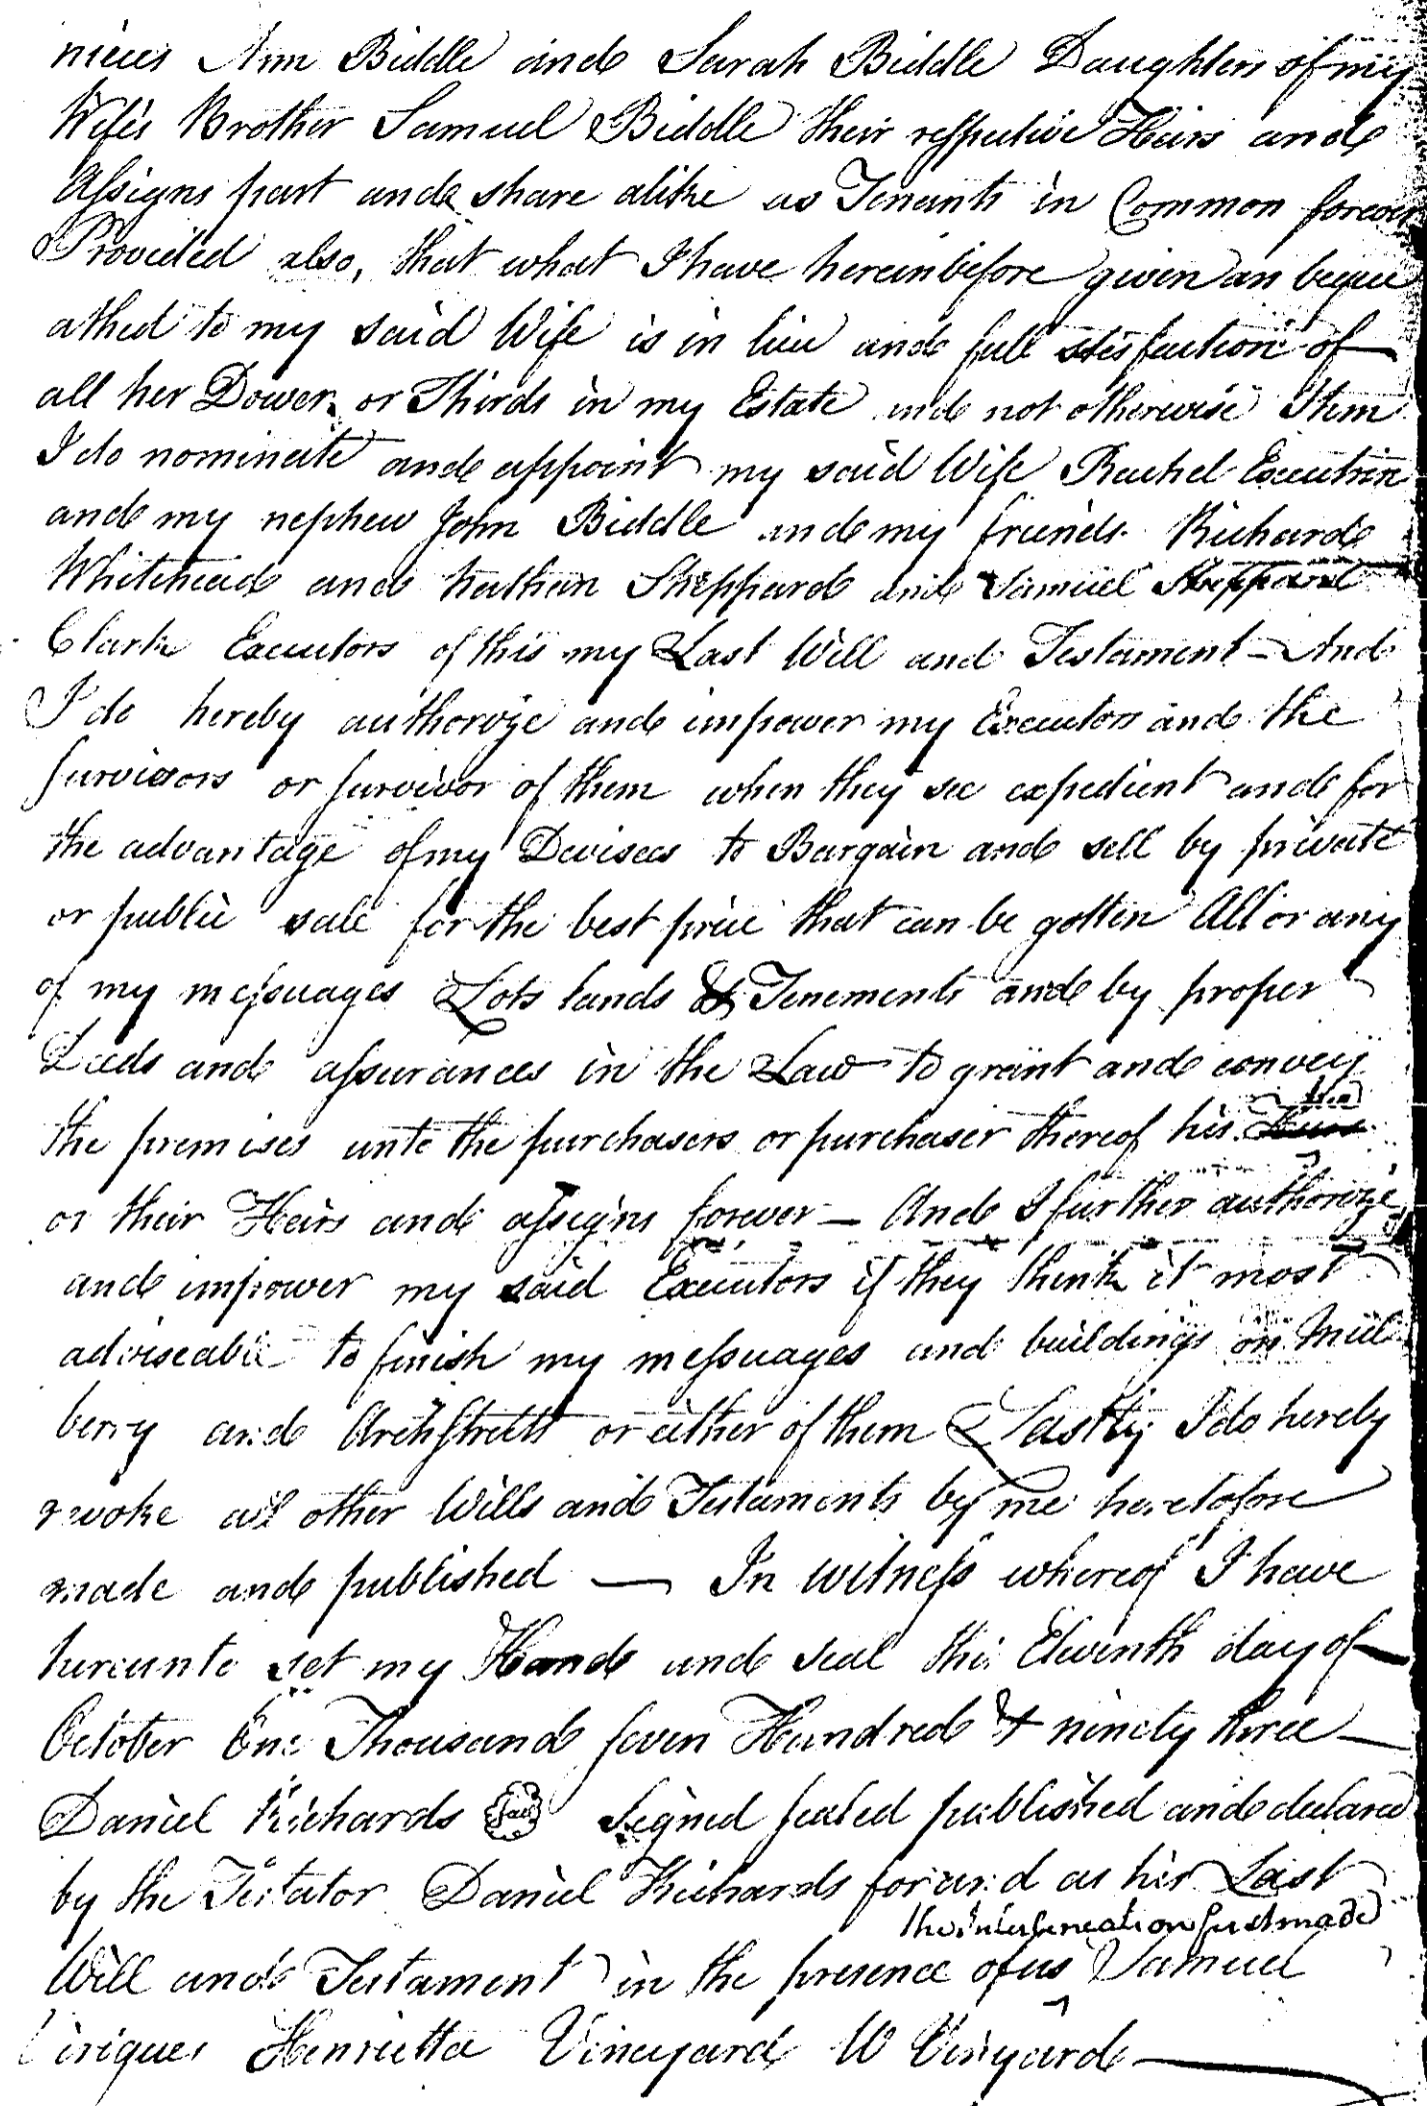 nieces Ann Biddle and Sarah Biddle Daughters of my
Wife's Brother Samuel Biddle their respective Heirs and
Assigns part and share alike as Tenants in Common forever
Provided also, that what I have hereinbefore given an beque
athed to my said Wife is in lieu and full stisfaction of
all her Dower or Thirds in my Estate and not otherwise Item
I do nominate and appoint my said Wife Rachel Executrix
and my nephew John Biddle and my friends Richard
Whitehead and Nathan Sheppard and Samuel Sheppard
Clark Executors of this my Last Will and Testament - And
I do hereby authorize and impower my Executors and the
Survivors or Survivor of them when they see expedient and for
the advantage of my Devisees to Bargain and sell by private
or public sale for the best price that can be gotten All or any
of my messuages Lots lands & Tenements and by proper
Deeds and assurances in the Law to grant and convey
the premises unto the purchasers or purchaser thereof his
or their Heirs and assigns forever — And I further authorize
and impower my said Executors if they think it most
adviseable to finish my messuages and buildings on Mul
berry and Arch Streets or either of them Lastly I do hereby
revoke all other Wills and Testaments by me heretofore
made and published — In witness whereof I have
hereunto set my Hand and seal this Eleventh day of
October One Thousand Seven Hundred & ninety three —
Daniel Richards Seal Signed Sealed published and declared
by the Testator Daniel Richards for and as his Last
the interlineation first made
Will and Testament in the presence of us Samuel
Henrietta Vineyard W Vinyard